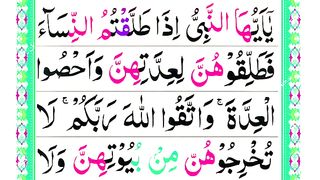 يٰۤاَيُّهَا النَّبِىُّ اِذَا طَلَّقۡتُمُ النِّسَآءَ
فَطَلِّقُوۡهُنَّ لِعِدَّتِهِنَّ وَاَحۡصُوا
الۡعِدَّةَ ۚ وَاتَّقُوا اللّٰهَ رَبَّكُمۡ ۚ لَا
تُخۡرِجُوۡهُنَّ مِنۡۢ بُيُوۡتِهِنَّ وَلَا